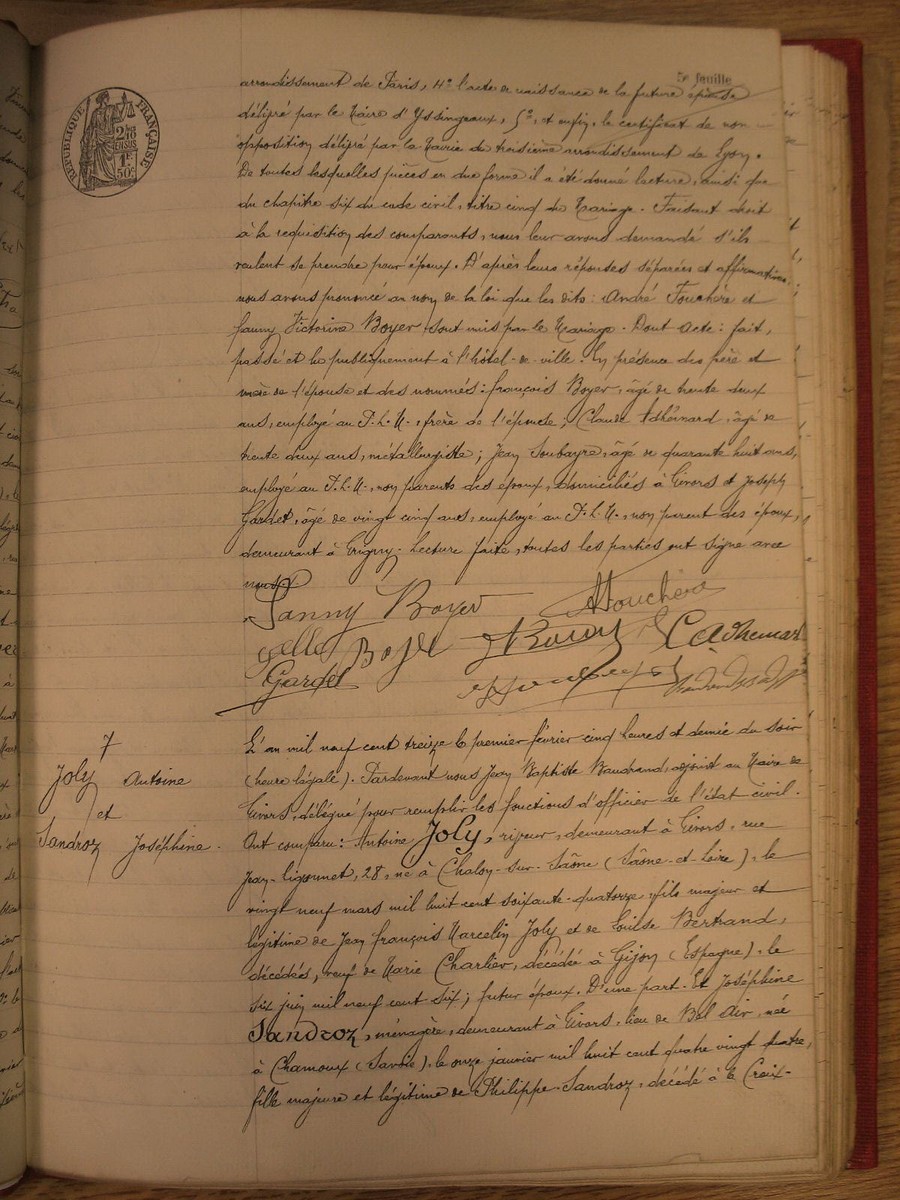 5e feuille
RÉPUBLIQUE FRANÇAISE
2/10 EN SUS
1F 50c
arrondissement de Paris, 4° l'acte de naissance de la future épouse
délivré par le Maire d'Yssingeaux, 5°, et enfin, le certificat de non
opposition délivré par la Mairie du troisième arrondissement de Lyon.
De toutes lesquelles pièces en due forme il a été donné lecture, ainsi que
du chapitre six du code civil, titre cinq du Mariage. Faisant droit
à la requisition des comparants, nous leur avons demandé s'ils
veulent se prendre pour époux. D'après leurs réponses séparées et affirmatives,
nous avons prononcé au nom de la loi que les dits: André Fouchère et
Fanny Victorine Boyer sont unis par le Mariage. Dont acte: fait,
passé et lu publiquement à l'hôtel-de-ville. En présence des père et
mère de l'épouse et des nommés: François Boyer, âgé de trente deux
ans, employé au P.L.M., frère de l'épouse; Claude Adhémard, âgé de
trente deux ans, métallurgiste; Jean Soubayre, âgé de quarante huit ans,
employé au P.L.M., non parents des époux, domiciliés à Givors et Joseph
Gardet, âgé de vingt cinq ans, employé au P.L.M., non parent des époux,
demeurant à Grigny. Lecture faite, toutes les parties ont signé avec
nous.
Fanny Boyer AFouchère
Boyer CAdhemard
Gardet
7
Joly Antoine
et
Sandroz Joséphine.
L'an mil neuf cent treize le premier février cinq heures et demie du soir
(heure légale). Pardevant nous Jean Baptiste Vaudrand, adjoint au Maire de
Givors, délégué pour remplir les fonctions d'officier de l'état civil.
Ont comparu: Antoine Joly, riveur, demeurant à Givors, rue
Jean-Ligonnet, 28, né à Chalon-sur-Saône (Saône-et-Loire), le
vingt neuf mars mil huit cent soixante-quatorze, fils majeur et
légitime de Jean François Marcelin Joly et de Louise Bertrand,
décédés, veuf de Marie Charlier, décédée à Gijon (Espagne), le
six juin mil neuf cent six; futur époux. D'une part. Et Joséphine
Sandroz, ménagère, demeurant à Givors, lieu de Bel Air, née
à Chamoux (Savoie), le onze janvier mil huit cent quatre vingt quatre,
fille majeure et légitime de Philippe Sandroz, décédé à la Croix-